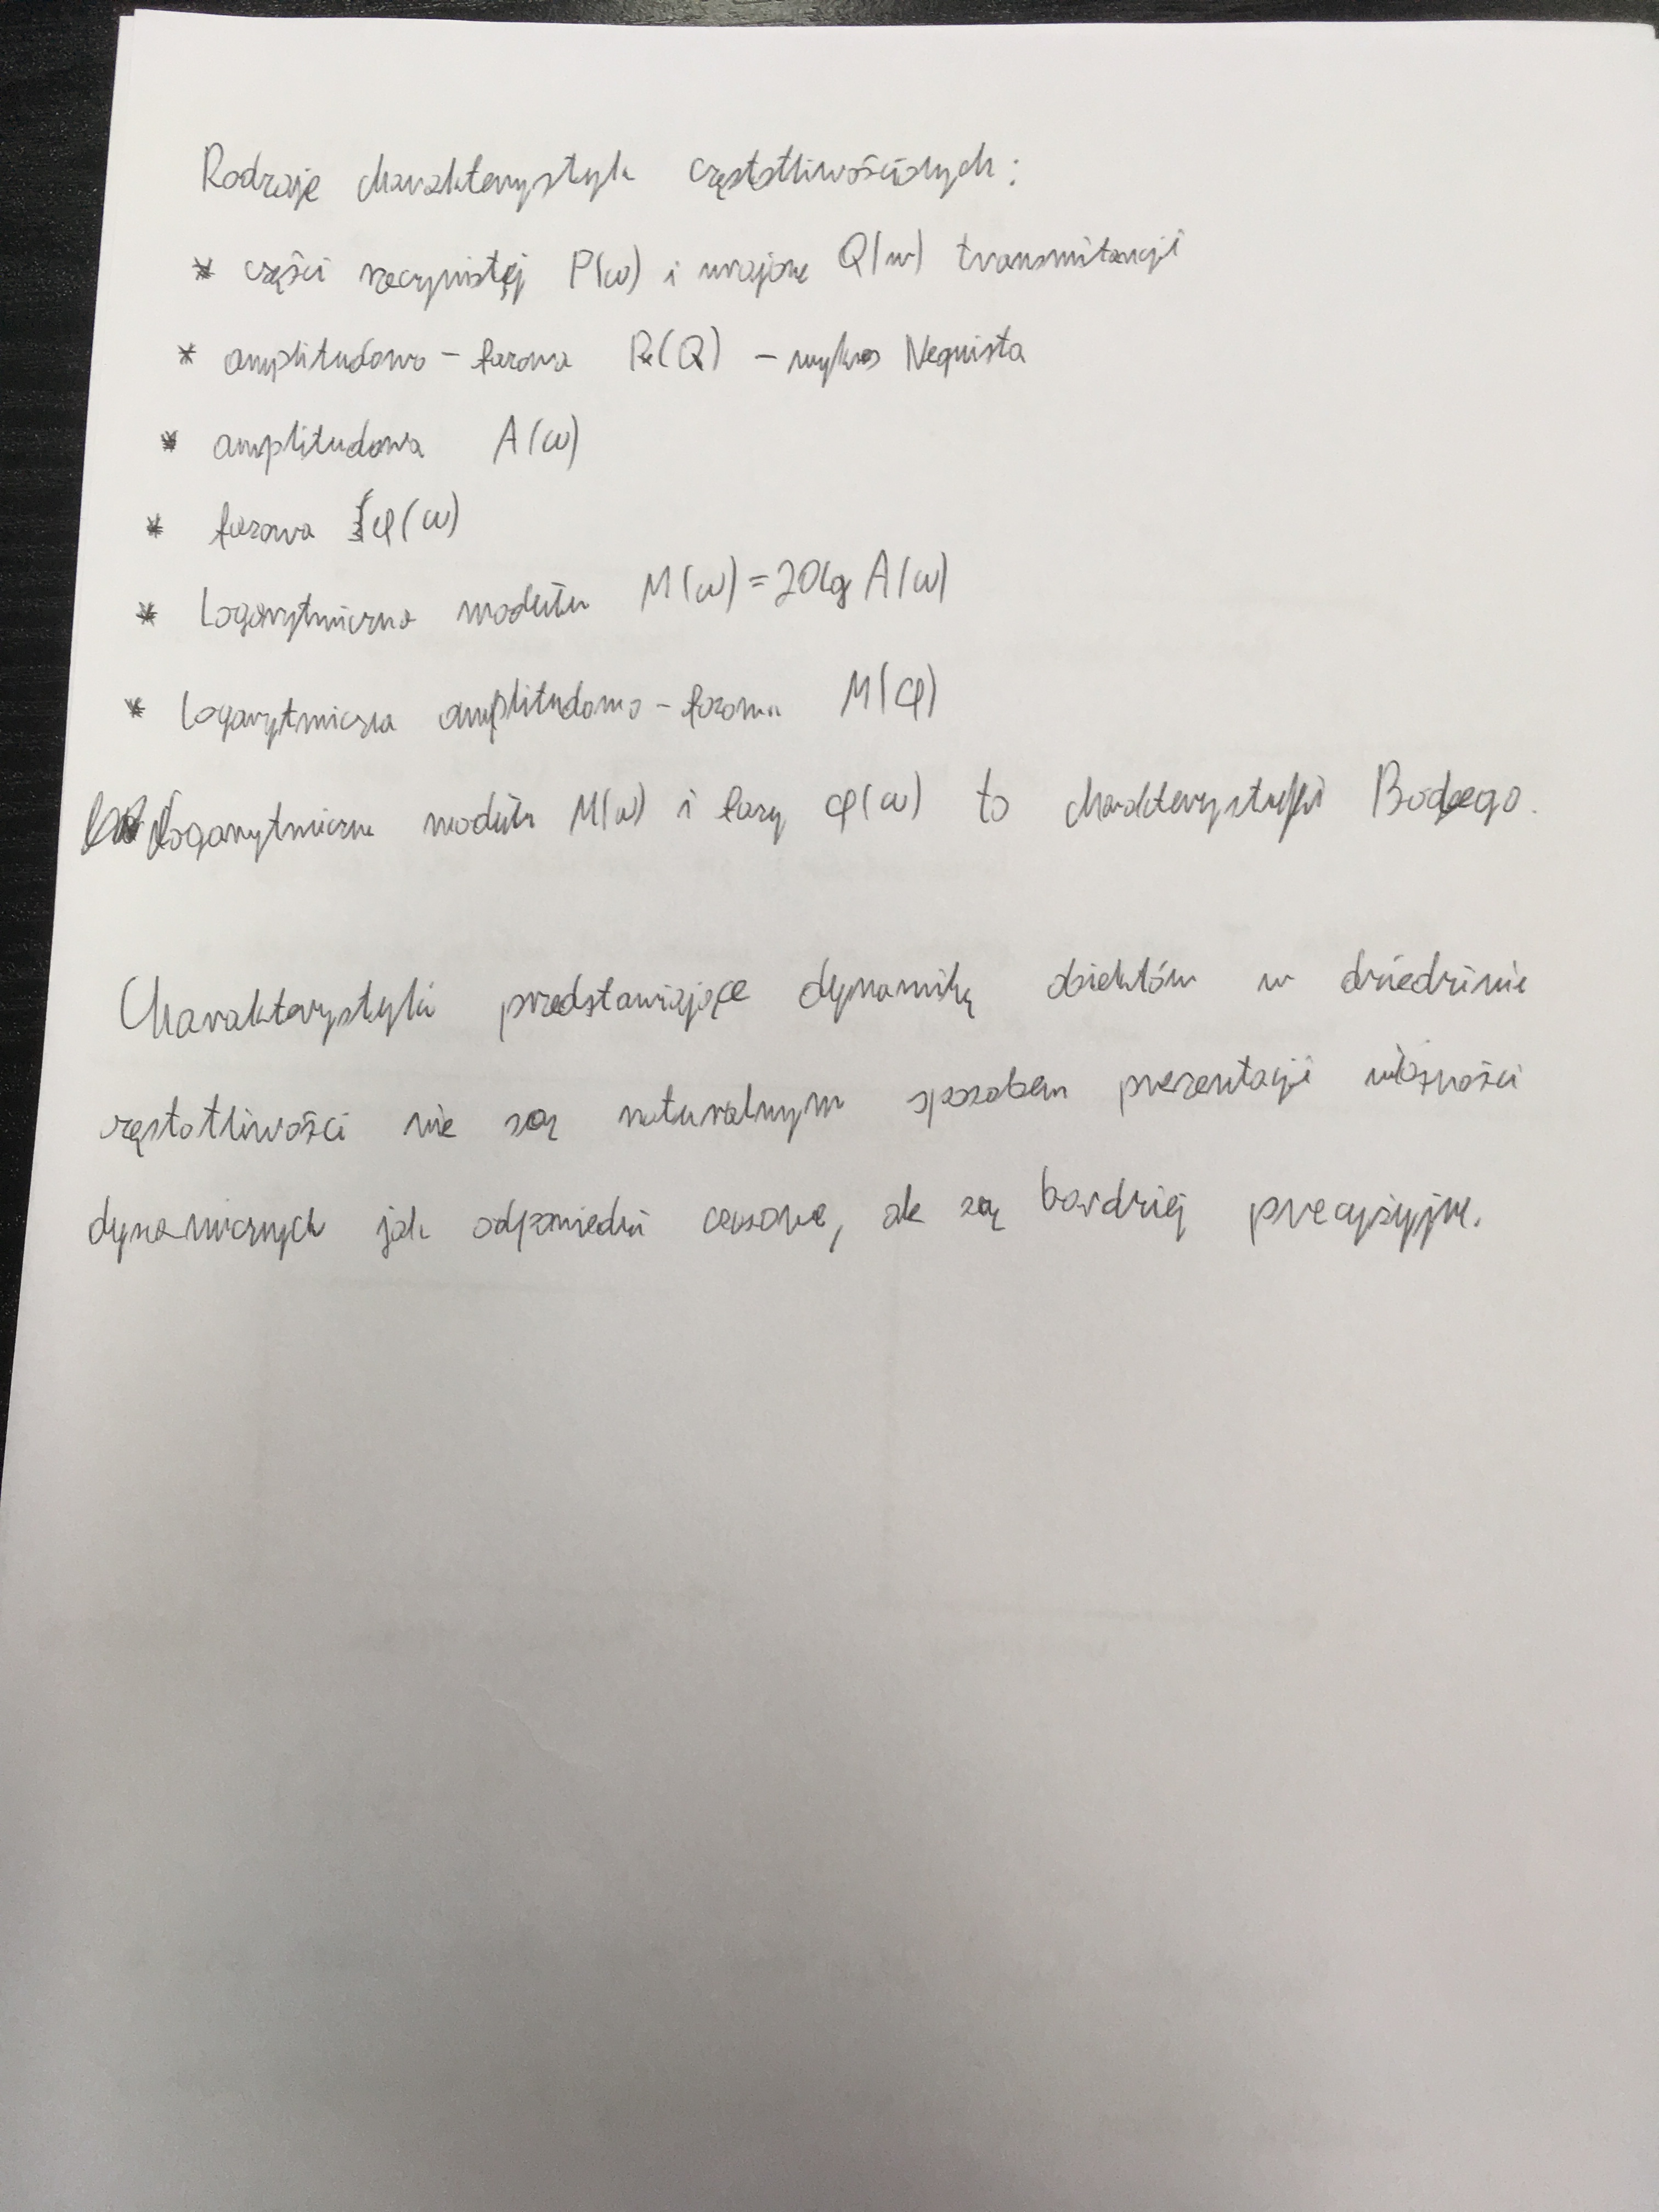 Rodzaje charakterystyk częstotliwościowych:
* części rzeczywistej P(ω) i urojone Q(ω) transmitancji
* amplitudowo - fazowa P(Q) - wykres Nequista
* amplitudowa A(ω)
* fazowa φ(ω)
* Logarytmiczna modułu M(ω) = 20lg A(ω)
* Logarytmiczna amplitudowo - fazowa M(φ)
Logarytmiczne modułu M(ω) i fazy φ(ω) to charakterystyki Bodego.
Charakterystyki przedstawiające dynamikę obiektów w dziedzinie
częstotliwości nie są naturalnym sposobem prezentacji własności
dynamicznych jak odpowiedzi czasowe, ale są bardziej precyzyjne.